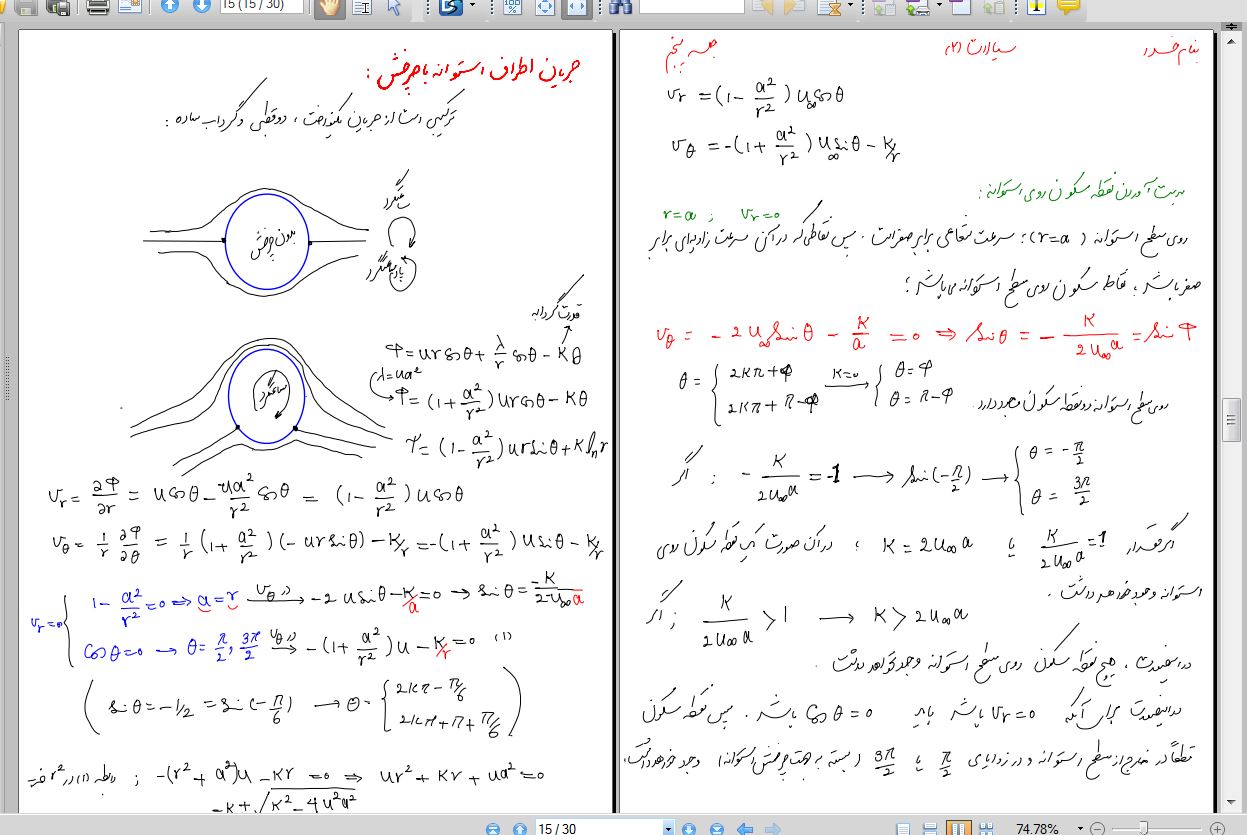 15 (15 / 30)
بنام خدا سیالات (۲) جلسه پنجم
جریان اطراف استوانه با چرخش :
ترکیبی است از جریان یکنواخت ، دوقطبی و گرداب ساده :
بدون چرخش
ساعتگرد
پادساعتگرد
قدرت گردابه
ساعتگرد
φ = ur cosθ + λ/r cosθ - Kθ
λ = ua²
φ = (1 + a²/r²) ur cosθ - Kθ
ψ = (1 - a²/r²) ur sinθ + K ln r
Vr = ∂φ/∂r = u cosθ - ua²/r² cosθ = (1 - a²/r²) u cosθ
Vθ = 1/r ∂φ/∂θ = 1/r (1 + a²/r²)(-ur sinθ) - K/r = -(1 + a²/r²) u sinθ - K/r
Vr=0 { 1 - a²/r² = 0 ⇒ a = r در Vθ → -2u sinθ - K/a = 0 → sinθ = -K/2u∞a
cosθ = 0 → θ = π/2, 3π/2 در Vθ → -(1 + a²/r²)u - K/r = 0 (1)
( sinθ = -1/2 = sin(-π/6) → θ = { 2Kπ - π/6
2Kπ + π + π/6 )
رابطه (1) در r² ضرب ; -(r² + a²)u - Kr = 0 ⇒ ur² + Kr + ua² = 0
-K ± √K² - 4u²a²
Vr = (1 - a²/r²) u∞ cosθ
Vθ = -(1 + a²/r²) u∞ sinθ - K/r
بدست آوردن نقطه سکون روی استوانه :
r = a ; Vr = 0
روی سطح استوانه (r=a) ; سرعت شعاعی برابر صفر است . پس نقاطی که در آن سرعت زاویه‌ای برابر
صفر باشد ، نقاط سکون روی سطح استوانه می باشد ;
Vθ = -2u∞ sinθ - K/a = 0 ⇒ sinθ = -K/2u∞a = sin φ
θ = { 2Kπ + φ
2Kπ + π - φ K=0 → { θ = φ
θ = π - φ
روی سطح استوانه دو نقطه سکون وجود دارد.
اگر ; -K/2u∞a = -1 → sin(-π/2) → { θ = -π/2
θ = 3π/2
اگر مقدار K/2u∞a = 1 یا K = 2u∞a ; در آن صورت یک نقطه سکون روی
استوانه وجود خواهد داشت .
اگر ; K/2u∞a > 1 → K > 2u∞a
در اینصورت ، هیچ نقطه سکون روی سطح استوانه وجود نخواهد داشت .
در اینصورت برای آنکه Vr = 0 باشد باید cosθ = 0 باشد . پس نقطه سکون
قطعاً در خارج از سطح استوانه و در زوایای π/2 یا 3π/2 (بسته به جهت چرخش استوانه) وجود خواهد داشت.
15 / 30
74.78%